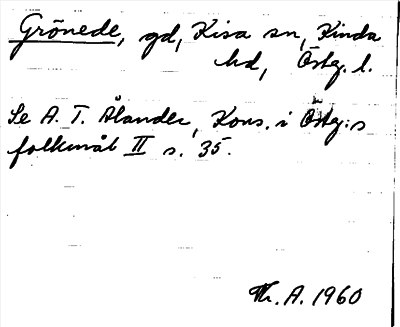 Grönede, gd, Kisa sn, Kinda
hd, Östg. l.
Se A. T. Ålander, Kons. i Östg:s
folkmål II s. 35.
Th. A. 1960